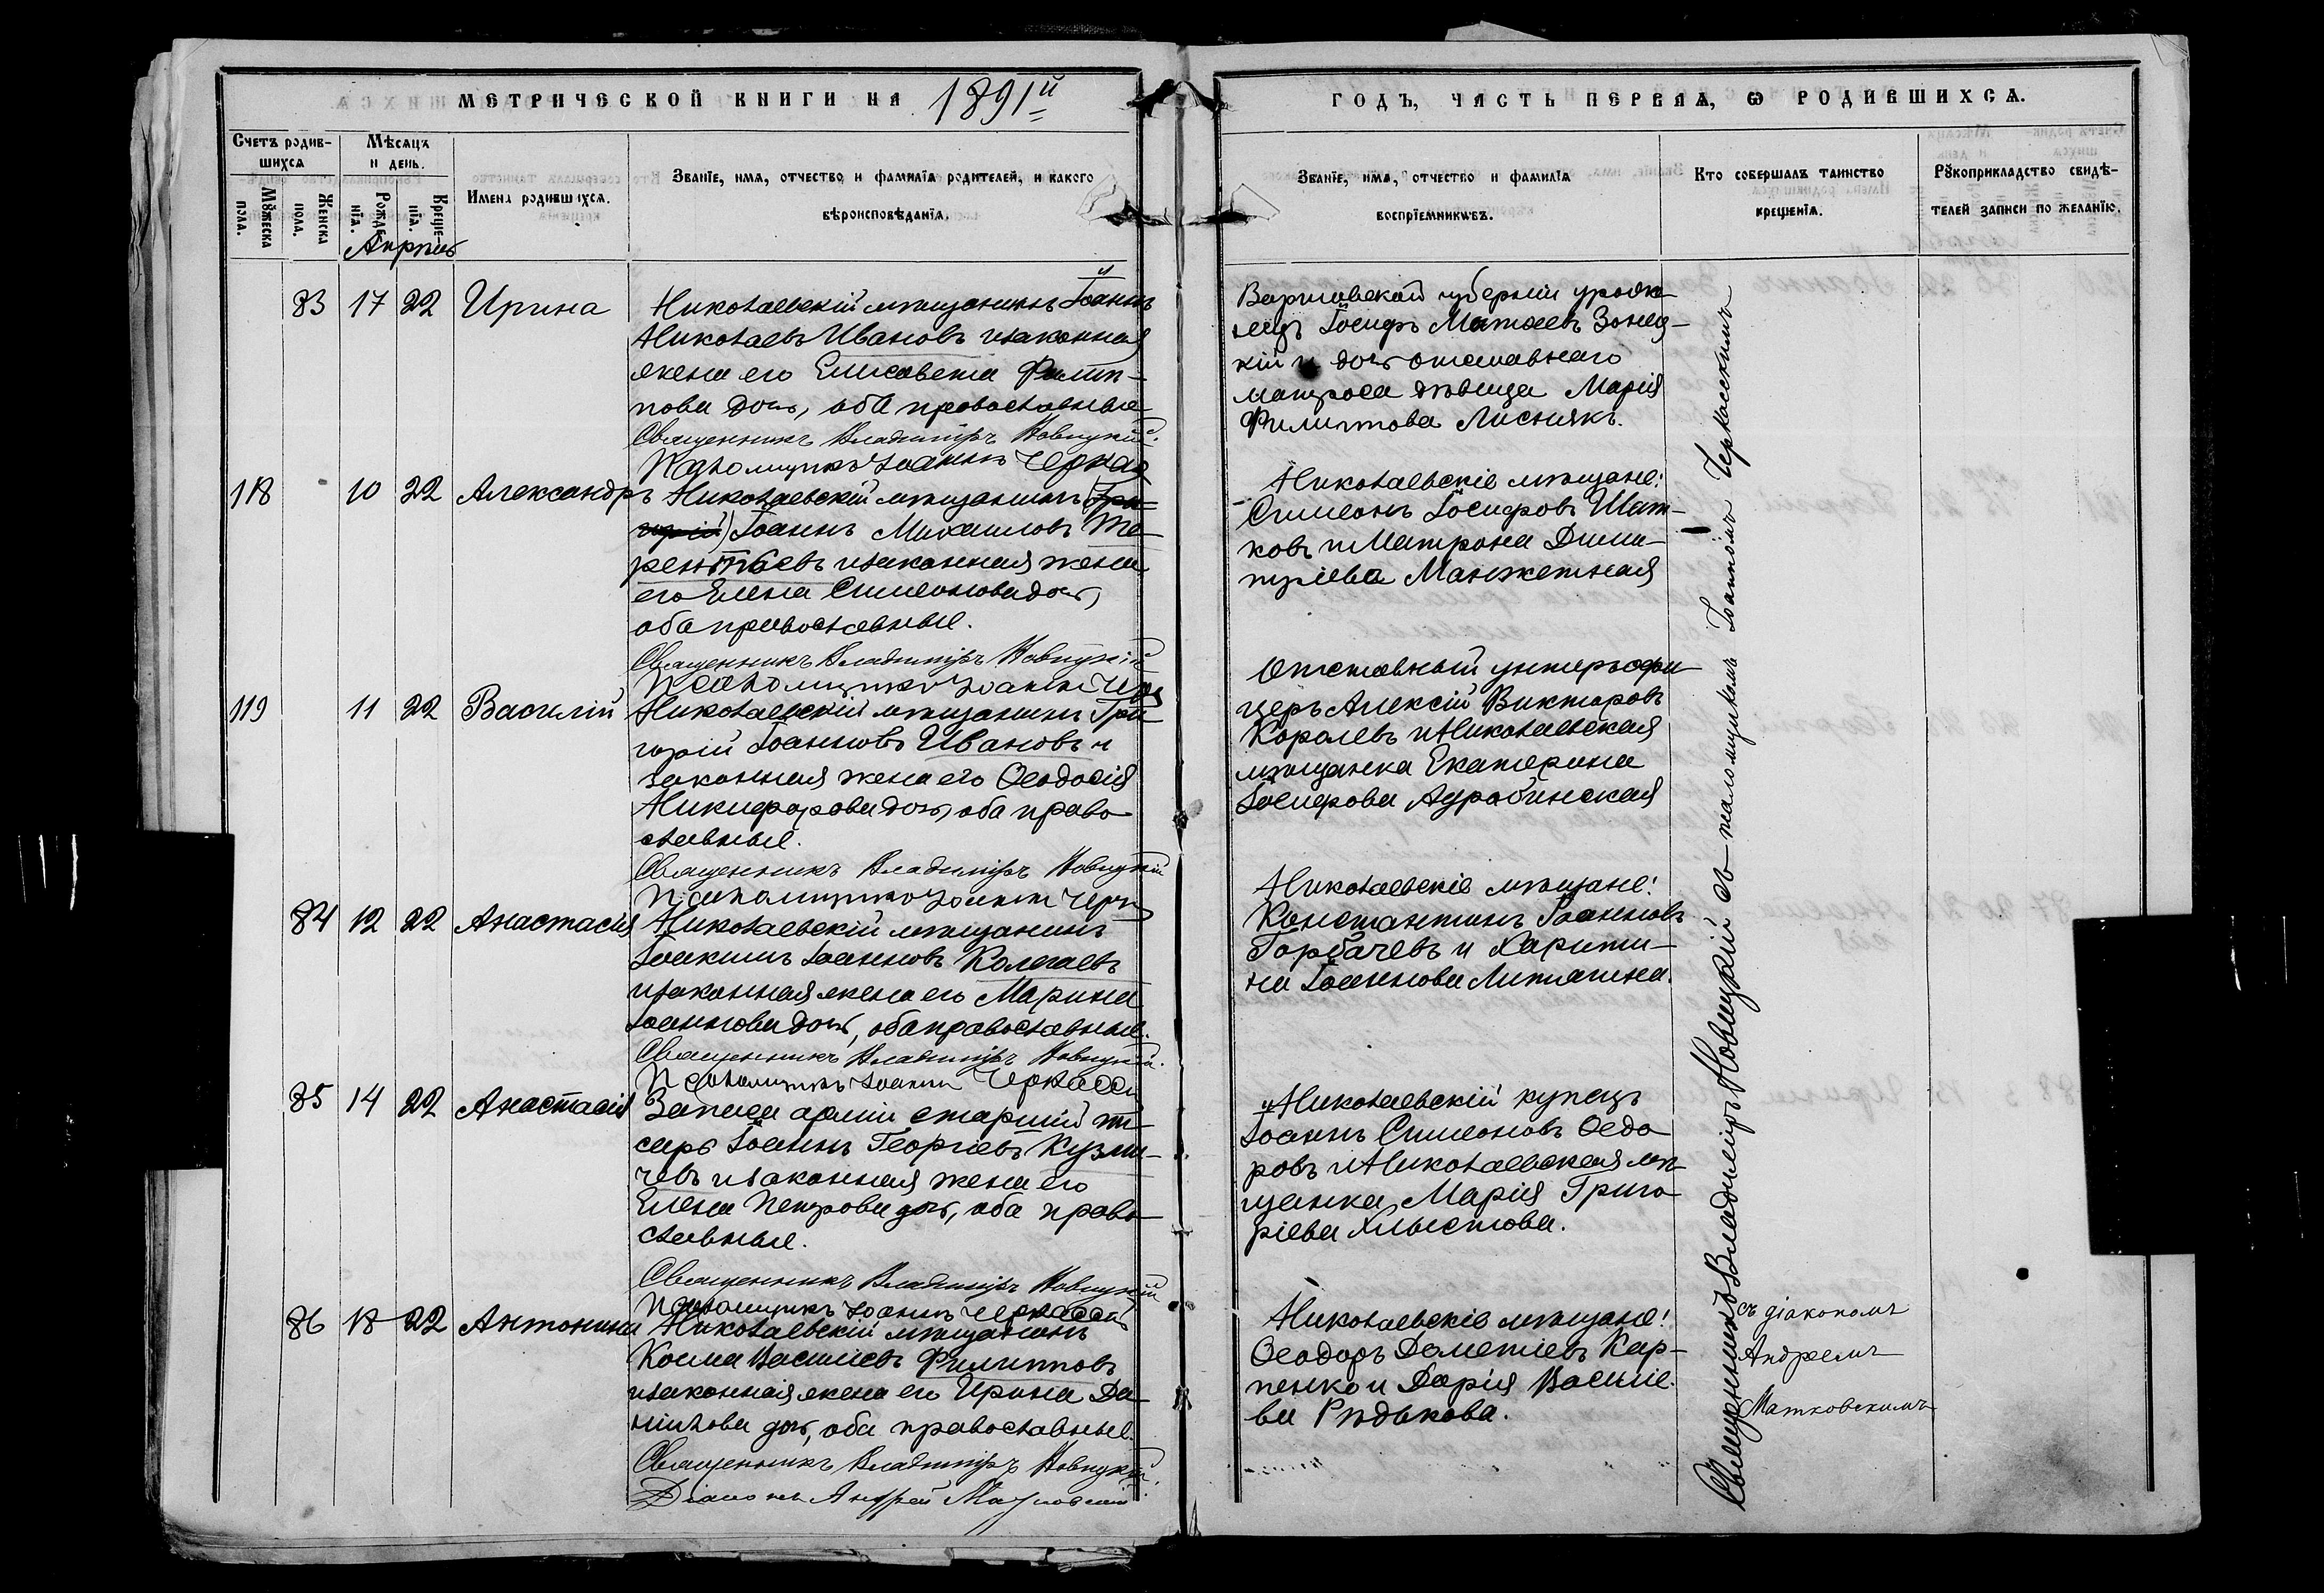 МЕТРИЧЕСКОЙ КНИГИ НА 1891й
ГОДЪ, ЧАСТЬ ПЕРВАЯ, Ѡ РОДИВШИХСѦ.
Счетъ родив-
шихсѧ
Мѣсѧцъ
и день.
Мꙋжеска
пола.
Женска
пола.
Рожде-
нїѧ.
Креще-
нїѧ.
Имена родившихсѧ.
Званїе, имѧ, отчество и фамилїѧ родителей, и какого
вѣроисповѣданїѧ.
Званїе, имѧ, отчество и фамилїѧ
воспрїемниковъ.
Кто совершалъ таинство
крещенїѧ.
Рꙋкоприкладство свидѣ-
телей записи по желанїю.
Апрѣль
83 17 22 Ирина
Николаевскій мѣщанинъ Іоаннъ
Николаевъ Ивановъ и законная
жена его Елисавета Филип-
пова дочь, оба православные
Священникъ Владиміръ Новицкій.
Псаломщикъ Іоаннъ
Варшавской губерніи уроже-
нецъ Іосифъ Матѳеевъ
кій и дочь отставнаго
матроса дѣвица Марія
Филиппова Лиснякъ.
118 10 22 Александръ
Николаевскій мѣщанинъ (Гри-
горій) Іоаннъ Михаиловъ Те-
рентьевъ и законная жена
его Елена Симеонова дочь,
оба православные.
Священникъ Владиміръ Новицкій
Псаломщикъ Іоаннъ
Николаевскіе мѣщане:
Симеонъ Іосифовъ Шат-
ковъ и Матрона Дими-
тріева Манжетная
119 11 22 Василій
Николаевскій мѣщанинъ Гри-
горій Іоанновъ Ивановъ и
законная жена его Ѳеодосія
Никифорова дочь, оба право-
славные.
Священникъ Владиміръ Новицкій
Псаломщикъ Іоаннъ
Отставный унтеръ-офи-
церъ Алексій Викторовъ
Королевъ и Николаевская
мѣщанка Екатерина
Іосифова
84 12 22 Анастасія
Николаевскій мѣщанинъ
Іоакимъ Іоанновъ Колгаевъ
и законная жена его Марина
Іоаннова дочь, оба православные.
Священникъ Владиміръ Новицкій.
Псаломщикъ Іоаннъ
Николаевскіе мѣщане:
Константинъ Іоанновъ
Горбачевъ и Харити-
на Іоаннова Литягина.
85 14 22 Анастасія
Запаса арміи старшій пи-
сарь Іоаннъ Георгіевъ Кузми-
чевъ и законная жена его
Елена Петрова дочь, оба право-
славные.
Священникъ Владиміръ Новицкій
Псаломщикъ Іоаннъ
Николаевскій купецъ
Іоаннъ Симеоновъ Ѳедо-
ровъ и Николаевская мѣ-
щанка Марія Григо-
ріева Хлыстова.
86 18 22 Антонина
Николаевскій мѣщанинъ
Косма Васильевъ Филипповъ
и законная жена его Ирина Да-
ніилова дочь, оба православные.
Священникъ Владиміръ Новицкій.
Діаконъ Андрей
Николаевскіе мѣщане:
Ѳеодоръ Дометіевъ Кар-
пенко и Дарія Василіе-
ва Рѣдькова.
Священникъ Владиміръ Новицкій съ псаломщикомъ Іоанномъ Черкасскимъ
съ діакономъ
Андреемъ
Матковскимъ